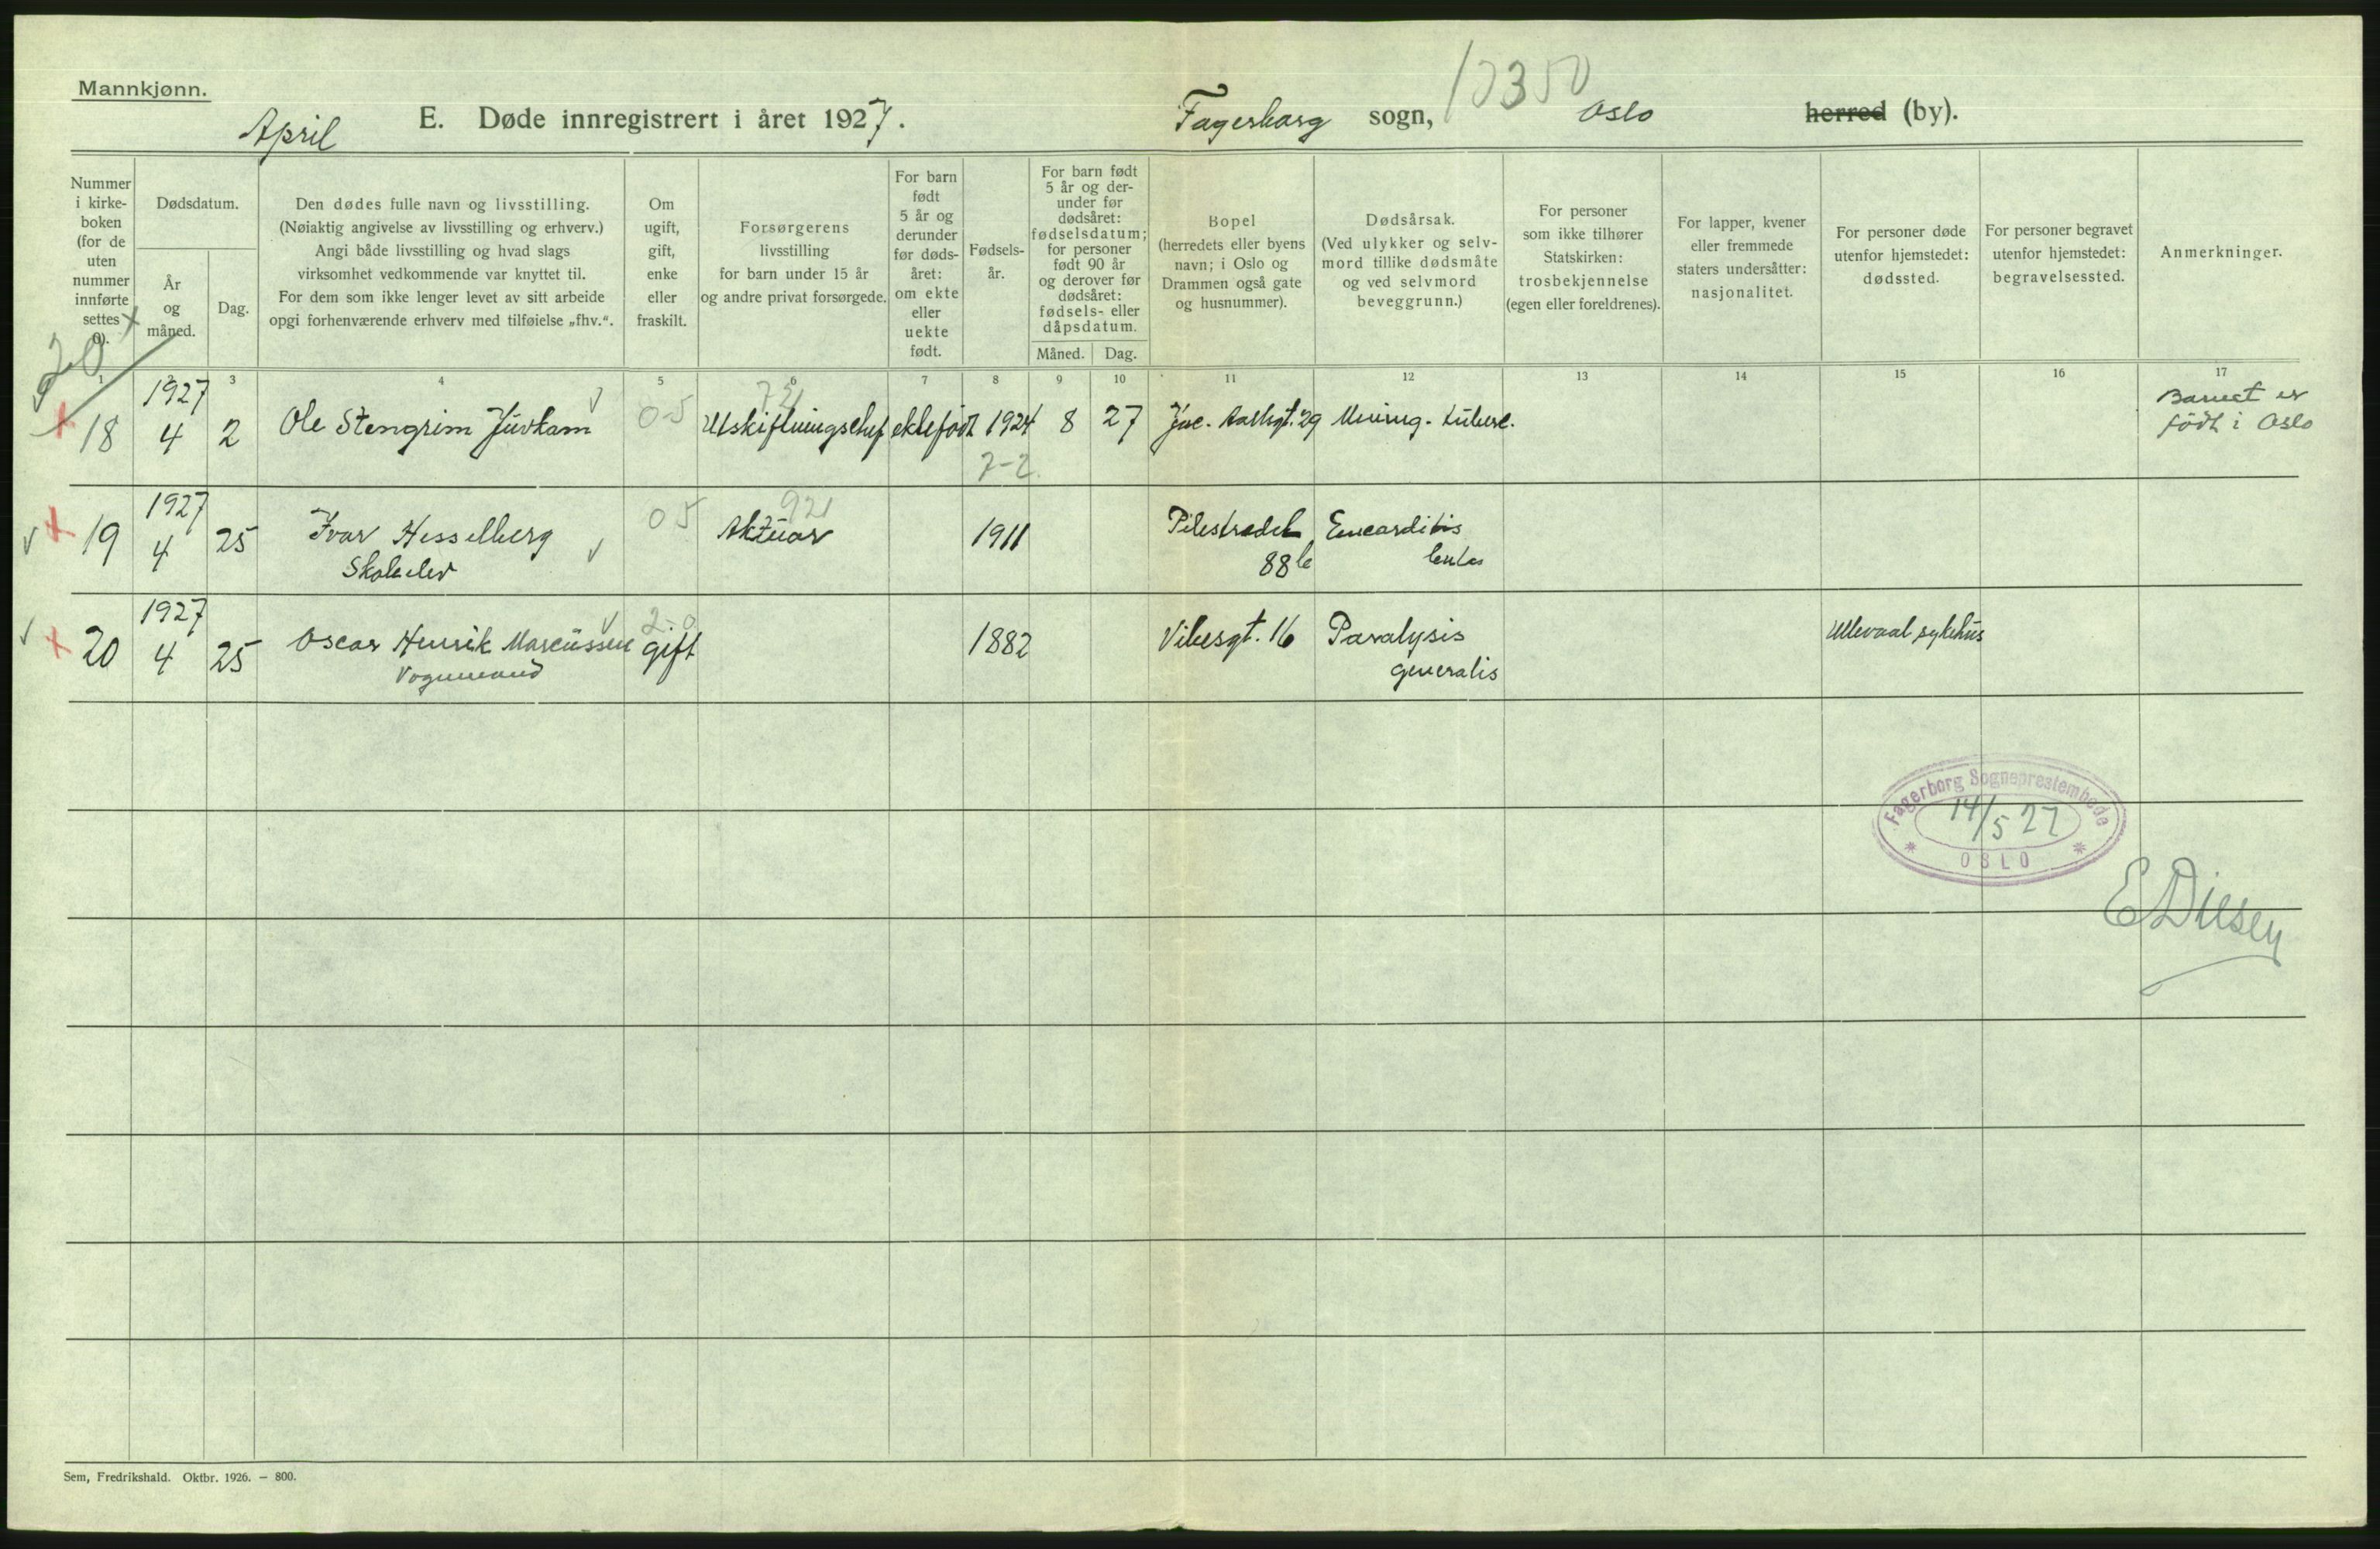 Mannkjønn.
April
E. Døde innregistrert i året 1927.
Fagerborg sogn, Oslo herred (by).
Nummer i kirke-boken (for de uten nummer innførte settes 0).
Dødsdatum.
År og måned.
Dag.
Den dødes fulle navn og livsstilling.
(Nøiaktig angivelse av livsstilling og erhverv.)
Angi både livsstilling og hvad slags
virksomhet vedkommende var knyttet til.
For dem som ikke lenger levet av sitt arbeide
opgi forhenværende erhverv med tilføielse „fhv.“.
Om ugift, gift, enke eller fraskilt.
Forsørgerens
livsstilling
for barn under 15 år
og andre privat forsørgede.
For barn født 5 år og derunder før døds-året: om ekte eller uekte født.
Fødsels-år.
For barn født 5 år og der-under før dødsåret: fødselsdatum; for personer født 90 år og derover før dødsåret: fødsels- eller dåpsdatum.
Måned.
Dag.
Bopel
(herredets eller byens
navn; i Oslo og
Drammen også gate
og husnummer).
Dødsårsak.
(Ved ulykker og selv-
mord tillike dødsmåte
og ved selvmord
beveggrunn.)
For personer
som ikke tilhører
Statskirken:
trosbekjennelse
(egen eller foreldrenes).
For lapper, kvener
eller fremmede
staters undersåtter:
nasjonalitet.
For personer døde
utenfor hjemstedet:
dødssted.
For personer begravet
utenfor hjemstedet:
begravelsessted.
Anmerkninger.
1 2 3 4 5 6 7 8 9 10 11 12 13 14 15 16 17
18 1927 4 2 Ole Stengrim Juvkam 0-5 ektefødt 1924 8 27 29 Mening. tuberc.
Barnet er
født i Oslo
7-2
19 1927 4 25 Ivar Hesselberg 05 921 Aktuar 1911 Pilestredet Encarditis
Skoleelev 88b lenta
20 1927 4 25 Oscar Henrik Marcussen 2-0 gift 1882 Vibesgt. 16 Paralysis Ullevaal sykehus
Vognmand generalis
Fagerborg Sogneprestembede
14/5 27
OSLO
E Diesen
Sem, Fredrikshald. Oktbr. 1926. — 800.